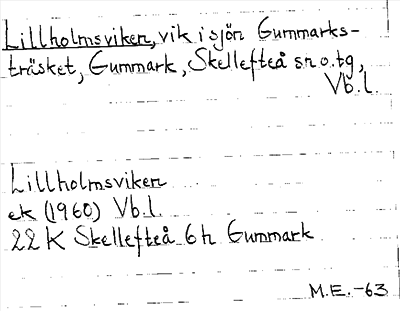 Lillholmsviken, vik i sjön Gummarks-
träsket, Gummark, Skellefteå sn o. tg,
Vb. l.
Lillholmsviken
ek (1960) Vb. l.
22 K Skellefteå 6 h Gummark
M.E. -63